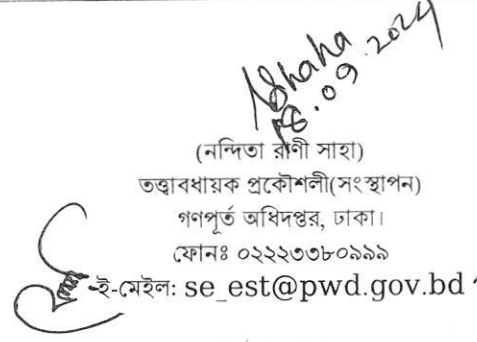 Shaha
18.09.2024
(নন্দিতা রাণী সাহা)
তত্ত্বাবধায়ক প্রকৌশলী(সংস্থাপন)
গণপূর্ত অধিদপ্তর, ঢাকা।
ফোনঃ ০২২২৩৩৮০৯৯৯
ই-মেইল: se_est@pwd.gov.bd